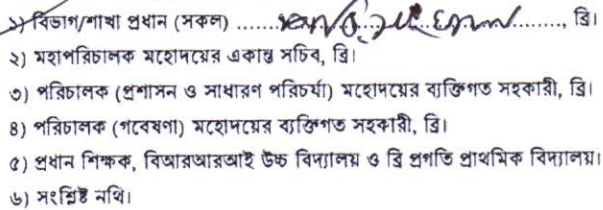 ১) বিভাগ/শাখা প্রধান (সকল) ...................................................., ব্রি।
২) মহাপরিচালক মহোদয়ের একান্ত সচিব, ব্রি।
৩) পরিচালক (প্রশাসন ও সাধারণ পরিচর্যা) মহোদয়ের ব্যক্তিগত সহকারী, ব্রি।
৪) পরিচালক (গবেষণা) মহোদয়ের ব্যক্তিগত সহকারী, ব্রি।
৫) প্রধান শিক্ষক, বিআরআরআই উচ্চ বিদ্যালয় ও ব্রি প্রগতি প্রাথমিক বিদ্যালয়।
৬) সংশ্লিষ্ট নথি।